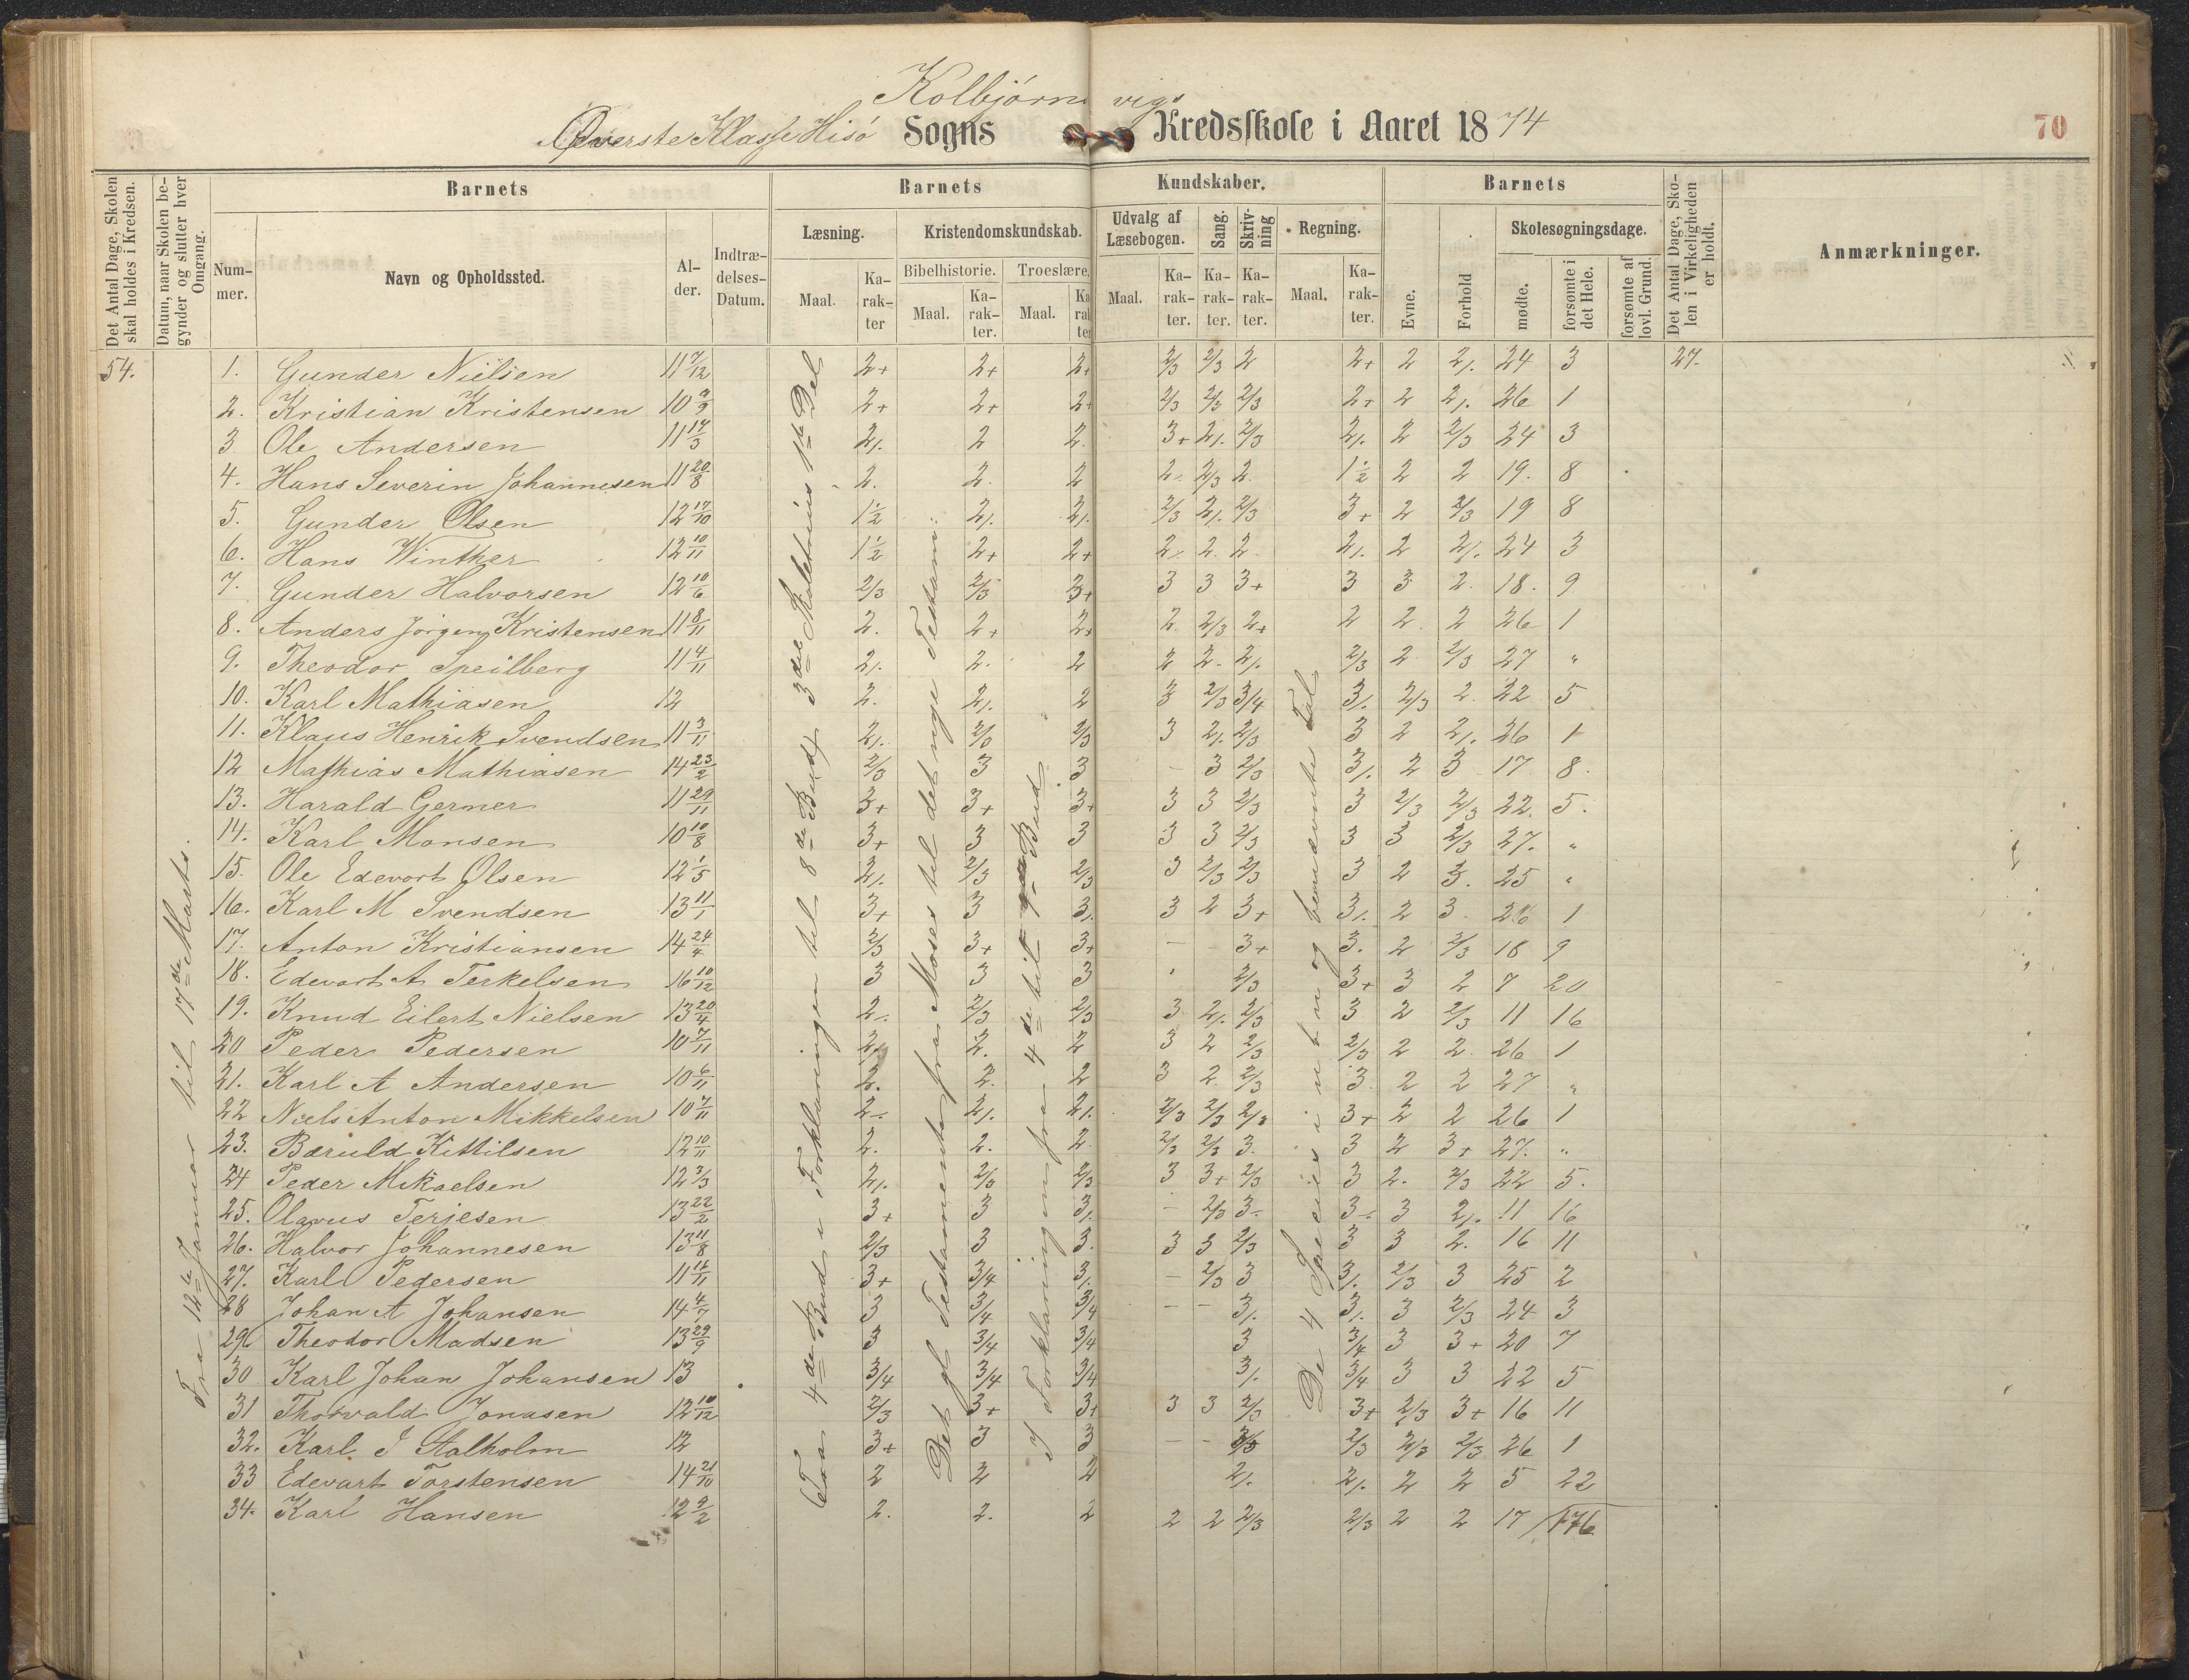 Kolbjørnsvigs
Øverste Klasse Hisø Sogns Kredsskole i Aaret 1874
70
Det Antal Dage, Skolen skal holdes i Kredsen.
Datum, naar Skolen begynder og slutter hver Omgang.
Barnets
Barnets Kundskaber.
Barnets
Det Antal Dage, Skolen i Virkeligheden er holdt.
Anmærkninger.
Nummer.
Navn og Opholdssted.
Alder.
Indtrædelses-Datum.
Læsning.
Kristendomskundskab.
Udvalg af Læsebogen.
Sang.
Skrivning
Regning.
Evne.
Forhold
Skolesøgningsdage.
Maal.
Karakter
Bibelhistorie.
Troeslære.
Maal.
Karakter.
Maal.
Karakter
Maal.
Karakter.
Karakter.
Karakter.
Maal.
Karakter.
mødte.
forsømte i det Hele.
forsømte af lovl. Grund.
54.
Fra 12te Januar til 17de Marts.
Fra 4de Bud i Forklaringen til 8de Bud 3die Skoletrins 1ste Del
Det gl Testamente fra Moses til det nye Testam:
I Forklaringen fra 4de til Bud.
De 4 Species i ubenævnte Tal
1. Gunder Nielsen 11 7/12 2+ 2+ 2+ 2/3 2/3 2 2+ 2 2/. 24 3 27.
2. Kristian Kristensen 10 9/9 2+ 2+ 2+ 2/3 2/3 2/3 2+ 2 2/. 26 1
3 Ole Andersen 11 17/3 2/. 2 2. 3+ 2/. 2/3 2/. 2 2/3 24 3
4. Hans Severin Johannesen 11 20/8 2. 2. 2 2. 2/3 2. 1½ 2 2 19. 8
5. Gunder Olsen 12 17/10 1½ 2/. 2/. 2/3 2/. 2/3 3+ 2 2/3 19 8
6. Hans Winther 12 10/11 1½ 2+ 2+ 2/. 2. 2. 2/. 2 2/. 24 3
7. Gunder Halvorsen 12 10/6 2/3 2/3 3+ 3 3 3+ 3 3 2. 18. 9
8. Anders Jørgen Kristensen 11 8/11 2. 2+ 2+ 2. 2/3 2+ 2 2. 2 26 1
9. Theodor Speilberg 11 4/11 2/. 2. 2 2 2. 2/. 2/3 2 2/3 27 "
10. Karl Mathiasen 12 2. 2/. 2 3 2/3 3/4 3/. 2/3 2. 22 5
11. Klaus Henrik Svendsen 11 3/11 2/. 2/3 2/3 3 2/. 2/3 3 2 2/. 26 1
12 Mathias Mathiasen 14 23/2 2/3 3 3 - 3 2/3 3/. 2 3 17 8.
13. Harald Germer 11 29/11 3+ 3+ 3+ 3 3 2/3 3 2/3 2/3 22. 5.
14. Karl Monsen 10 10/8 3+ 3 3 3 3 2/3 3 3 2/3 27. "
15. Ole Edevart Olsen 12 1/5 2/. 2/3 2/3 3 2/3 2/3 3 2 3. 25 "
16. Karl M Svendsen 13 11/1 3+ 3 3/. 3 2 3+ 3/. 2 3. 26 1
17. Anton Kristiansen 14 24/4 2/3 3+ 3+ - - 3+ 3. 2 2/3 18 9
18. Edevart A Terkelsen 16 10/12 3 3 3 2/3 3+ 3 2 7 20
19. Knud Eilert Nielsen 13 20/4 2/. 2/3 2/3 3 2/. 2/3 3 2 2/3 11 16
20 Peder Pedersen 10 7/11 2/. 2. 2 3 2 2/3 2/3 2 2. 26 1
21. Karl A Andersen 10 6/11 2. 2. 2 3 2. 2/3 3. 2 2 27 "
22 Niels Anton Mikkelsen 10 7/11 2/. 2/. 2/. 2/3 2/3 2/3 3+ 2 2 26 1
23. Bæruld Kittilsen 12 10/11 2. 2. 2. 2/3 2/3 3. 3 2 3+ 27. "
24 Peder Mikaelsen 12 3/3 2/. 2/3 2/3 3 3+ 2/3 3 2. 2/3 22 5.
25. Olavus Terjesen 13 22/2 3+ 3 3/. - 2/3 3/. 3/. 3 2/. 11 16
26. Halvor Johannesen 13 11/8 2/3 3 3. 3 3 2/3 3 3 2. 16 11
27. Karl Pedersen 11 11/11 3+ 3/4 3/. - 2/3 3 3/. 2/3 3 25 2
28 Johan A Johansen 14 4/7 3 3/4 3/4 - - 3/. 3/. 3 2/3 24 3
29 Theodor Madsen 13 29/9 3 3/4 3/4 3 3/4 3 3+ 20 7
30 Karl Johan Johansen 13 3/4 3/4 3/4 3/. 3/4 3 3 22 5
31 Thorvald Jonasen 12 10/12 2/3 3+ 3+ 3 3 2/3 3+ 2/3 3+ 16 11
32. Karl J Stalholm 12 3+ 3 3 - - 2/3 2/3 2/3 26 1
33 Edevart Torstensen 14 21/10 2 2 2 2/. 2/. 2 2 5 22
34. Karl Hansen 12 9/2 2. 2. 2 2 2 2/3 2/3 2 2 17 176